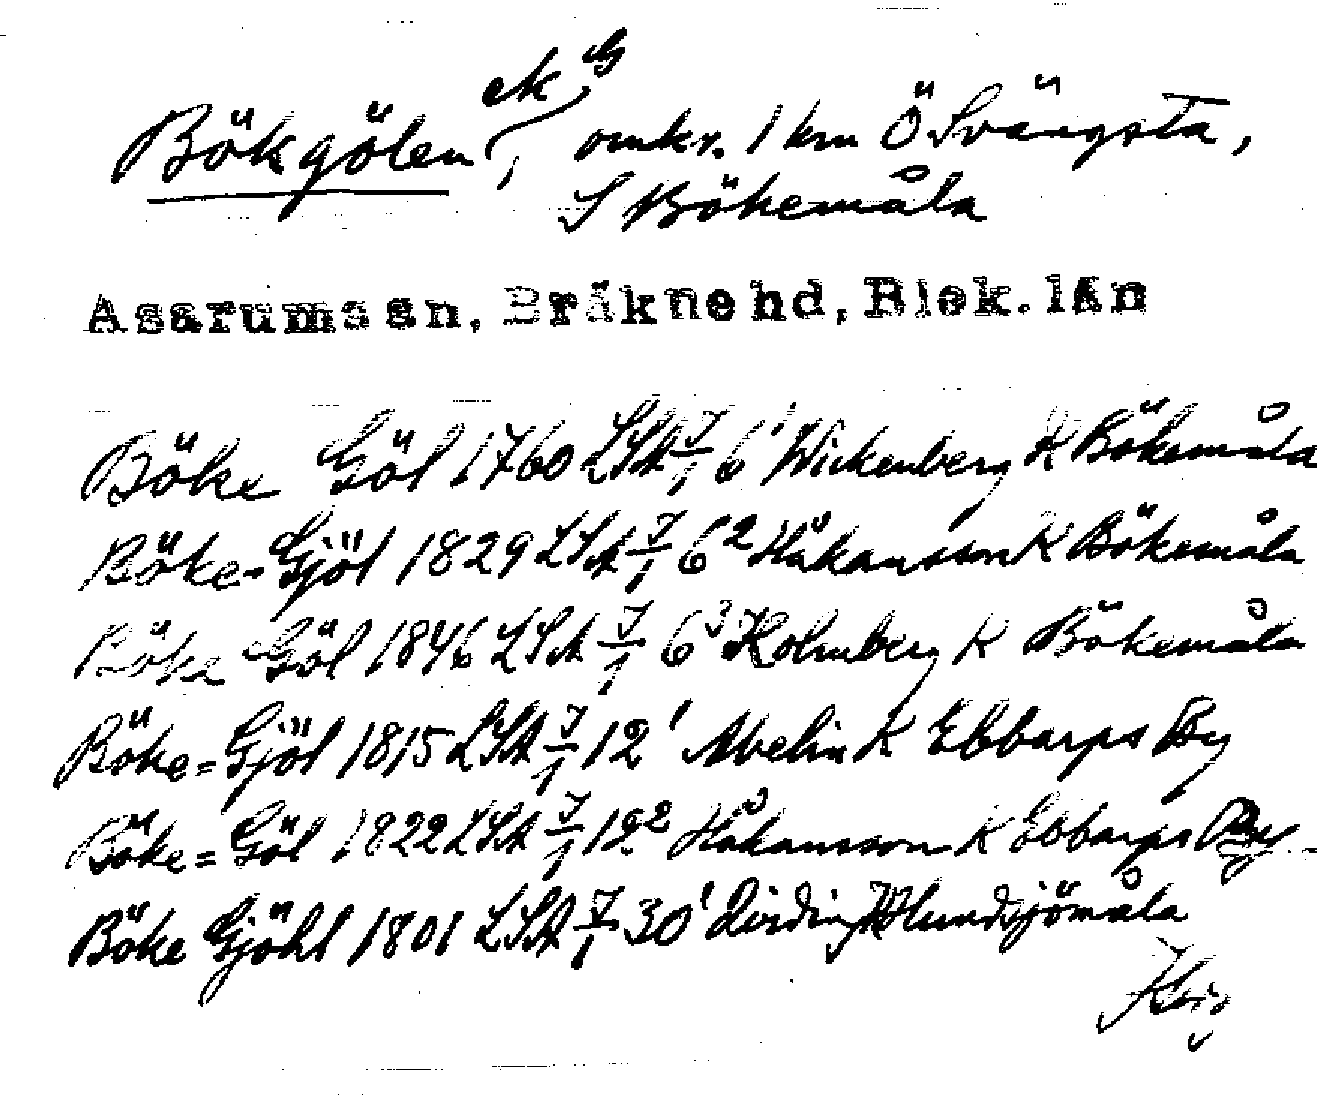 ek G
Bökgölen, omkr. 1 km Ö Svängsta,
S Bökemåla
Asarums sn, Bräkne hd, Blek. län
Böke Göl 1760 LSA 7/1 6¹ Wickenberg K Bökemåla
Böke-Gjöl 1829 LSA 7/1 6² Håkansson K Bökemåla
Böke Göl 1846 LSA 7/1 6³ Holmberg K Bökemåla
Böke=Gjöl 1815 LSA 7/1 12¹ Abelin K Ebbarps By
Böke=Göl 1822 LSA 7/1 12² Håkansson K Ebbarps By
Böke Gjöhl 1801 LSA 7/1 30¹ K Hundsjömåla